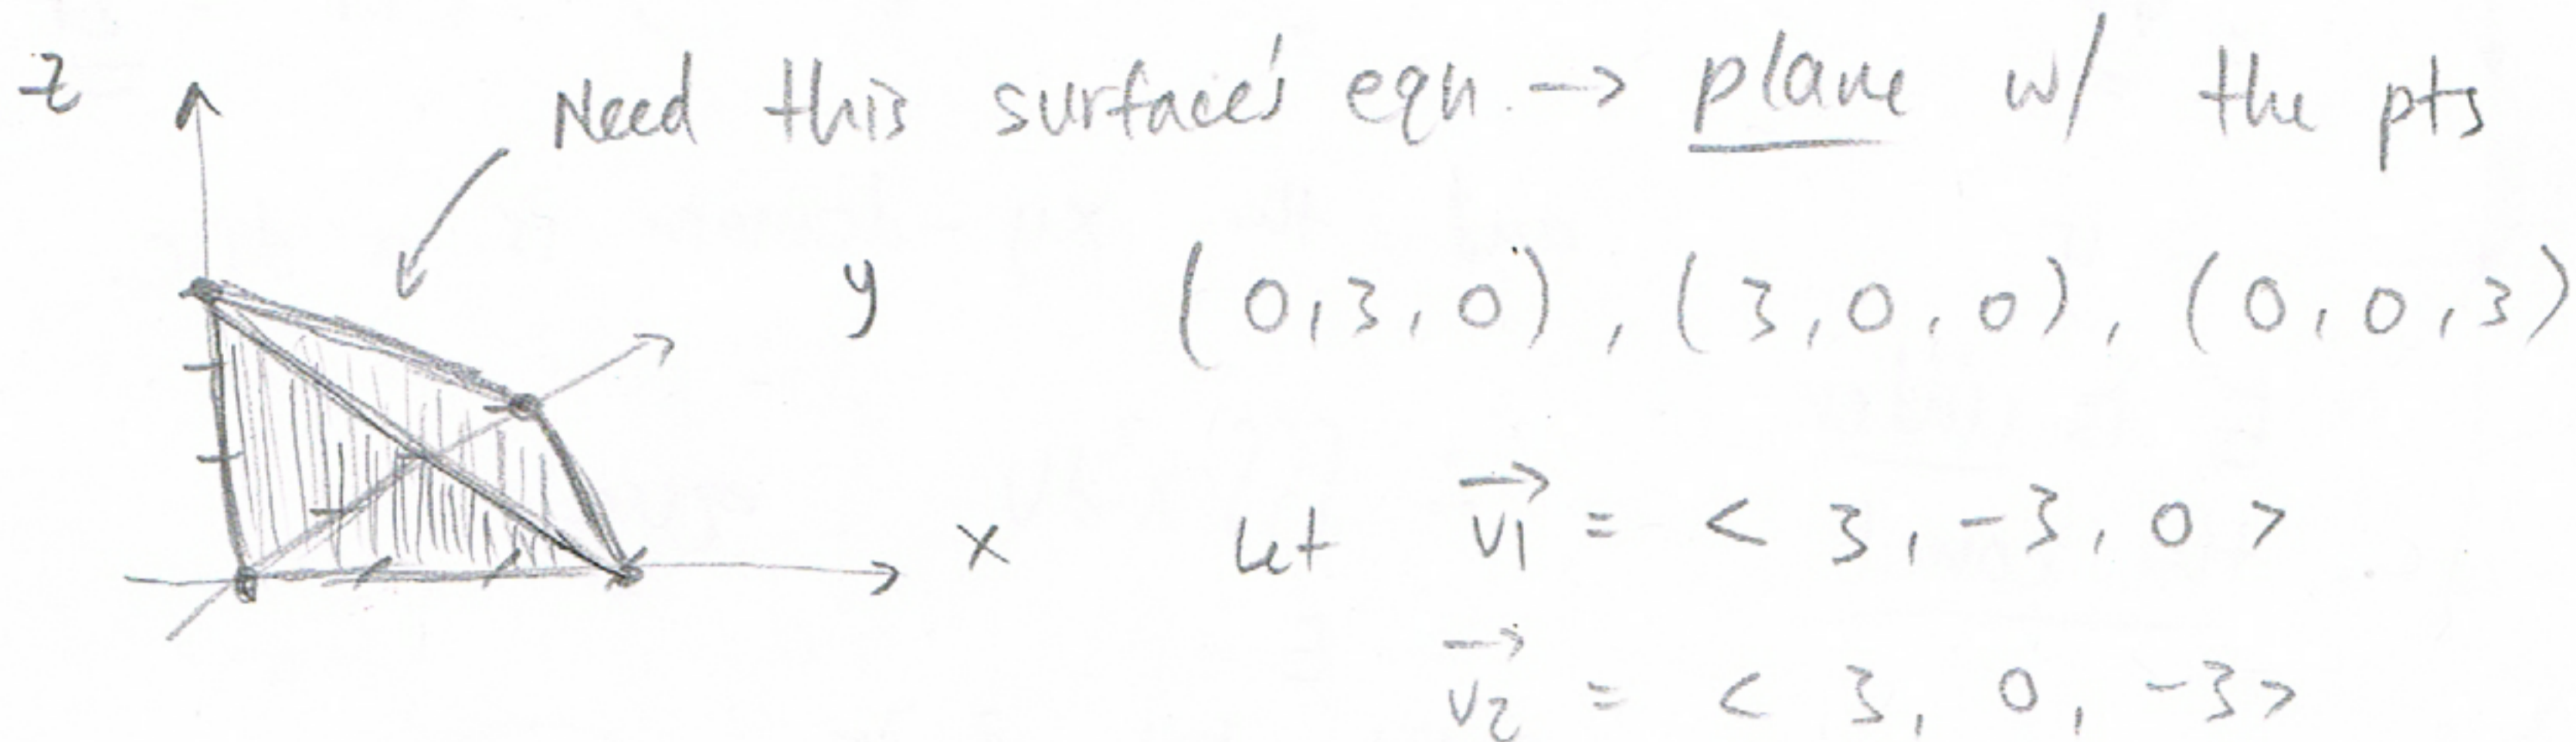 z
Need this surface's eqn. → plane w/ the pts
y
(0,3,0), (3,0,0), (0,0,3)
x
Let v1 = < 3, -3, 0 >
v2 = < 3, 0, -3 >